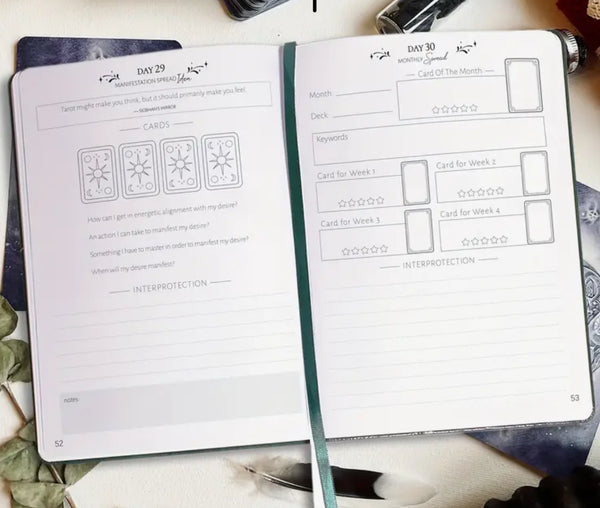 DAY 29
MANIFESTATION SPREAD Idea
Tarot might make you think, but it should primarily make you feel.
— SIOBHAN'S MIRROR
CARDS
How can I get in energetic alignment with my desire?
An action I can take to manifest my desire?
Something I have to master in order to manifest my desire?
When will my desire manifest?
INTERPROTECTION
notes:
52
DAY 30
MONTHLY Spread
Card Of The Month
Month:
Deck:
Keywords
Card for Week 1
Card for Week 2
Card for Week 3
Card for Week 4
INTERPROTECTION
53